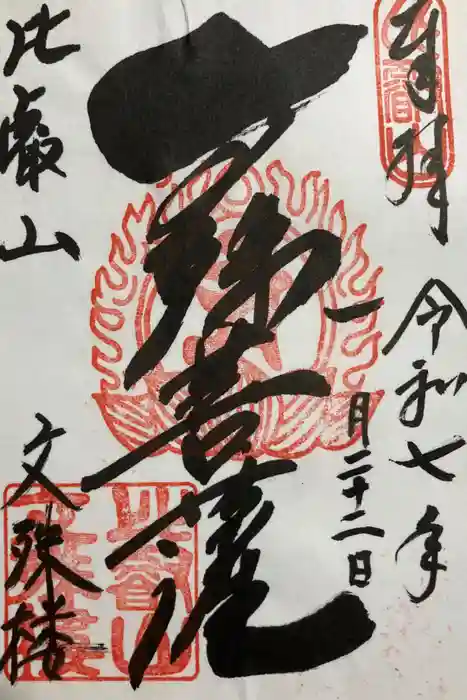 奉拝
令和七年
一月二十二日
文殊菩薩
比叡山
文殊楼
比叡山
文殊楼